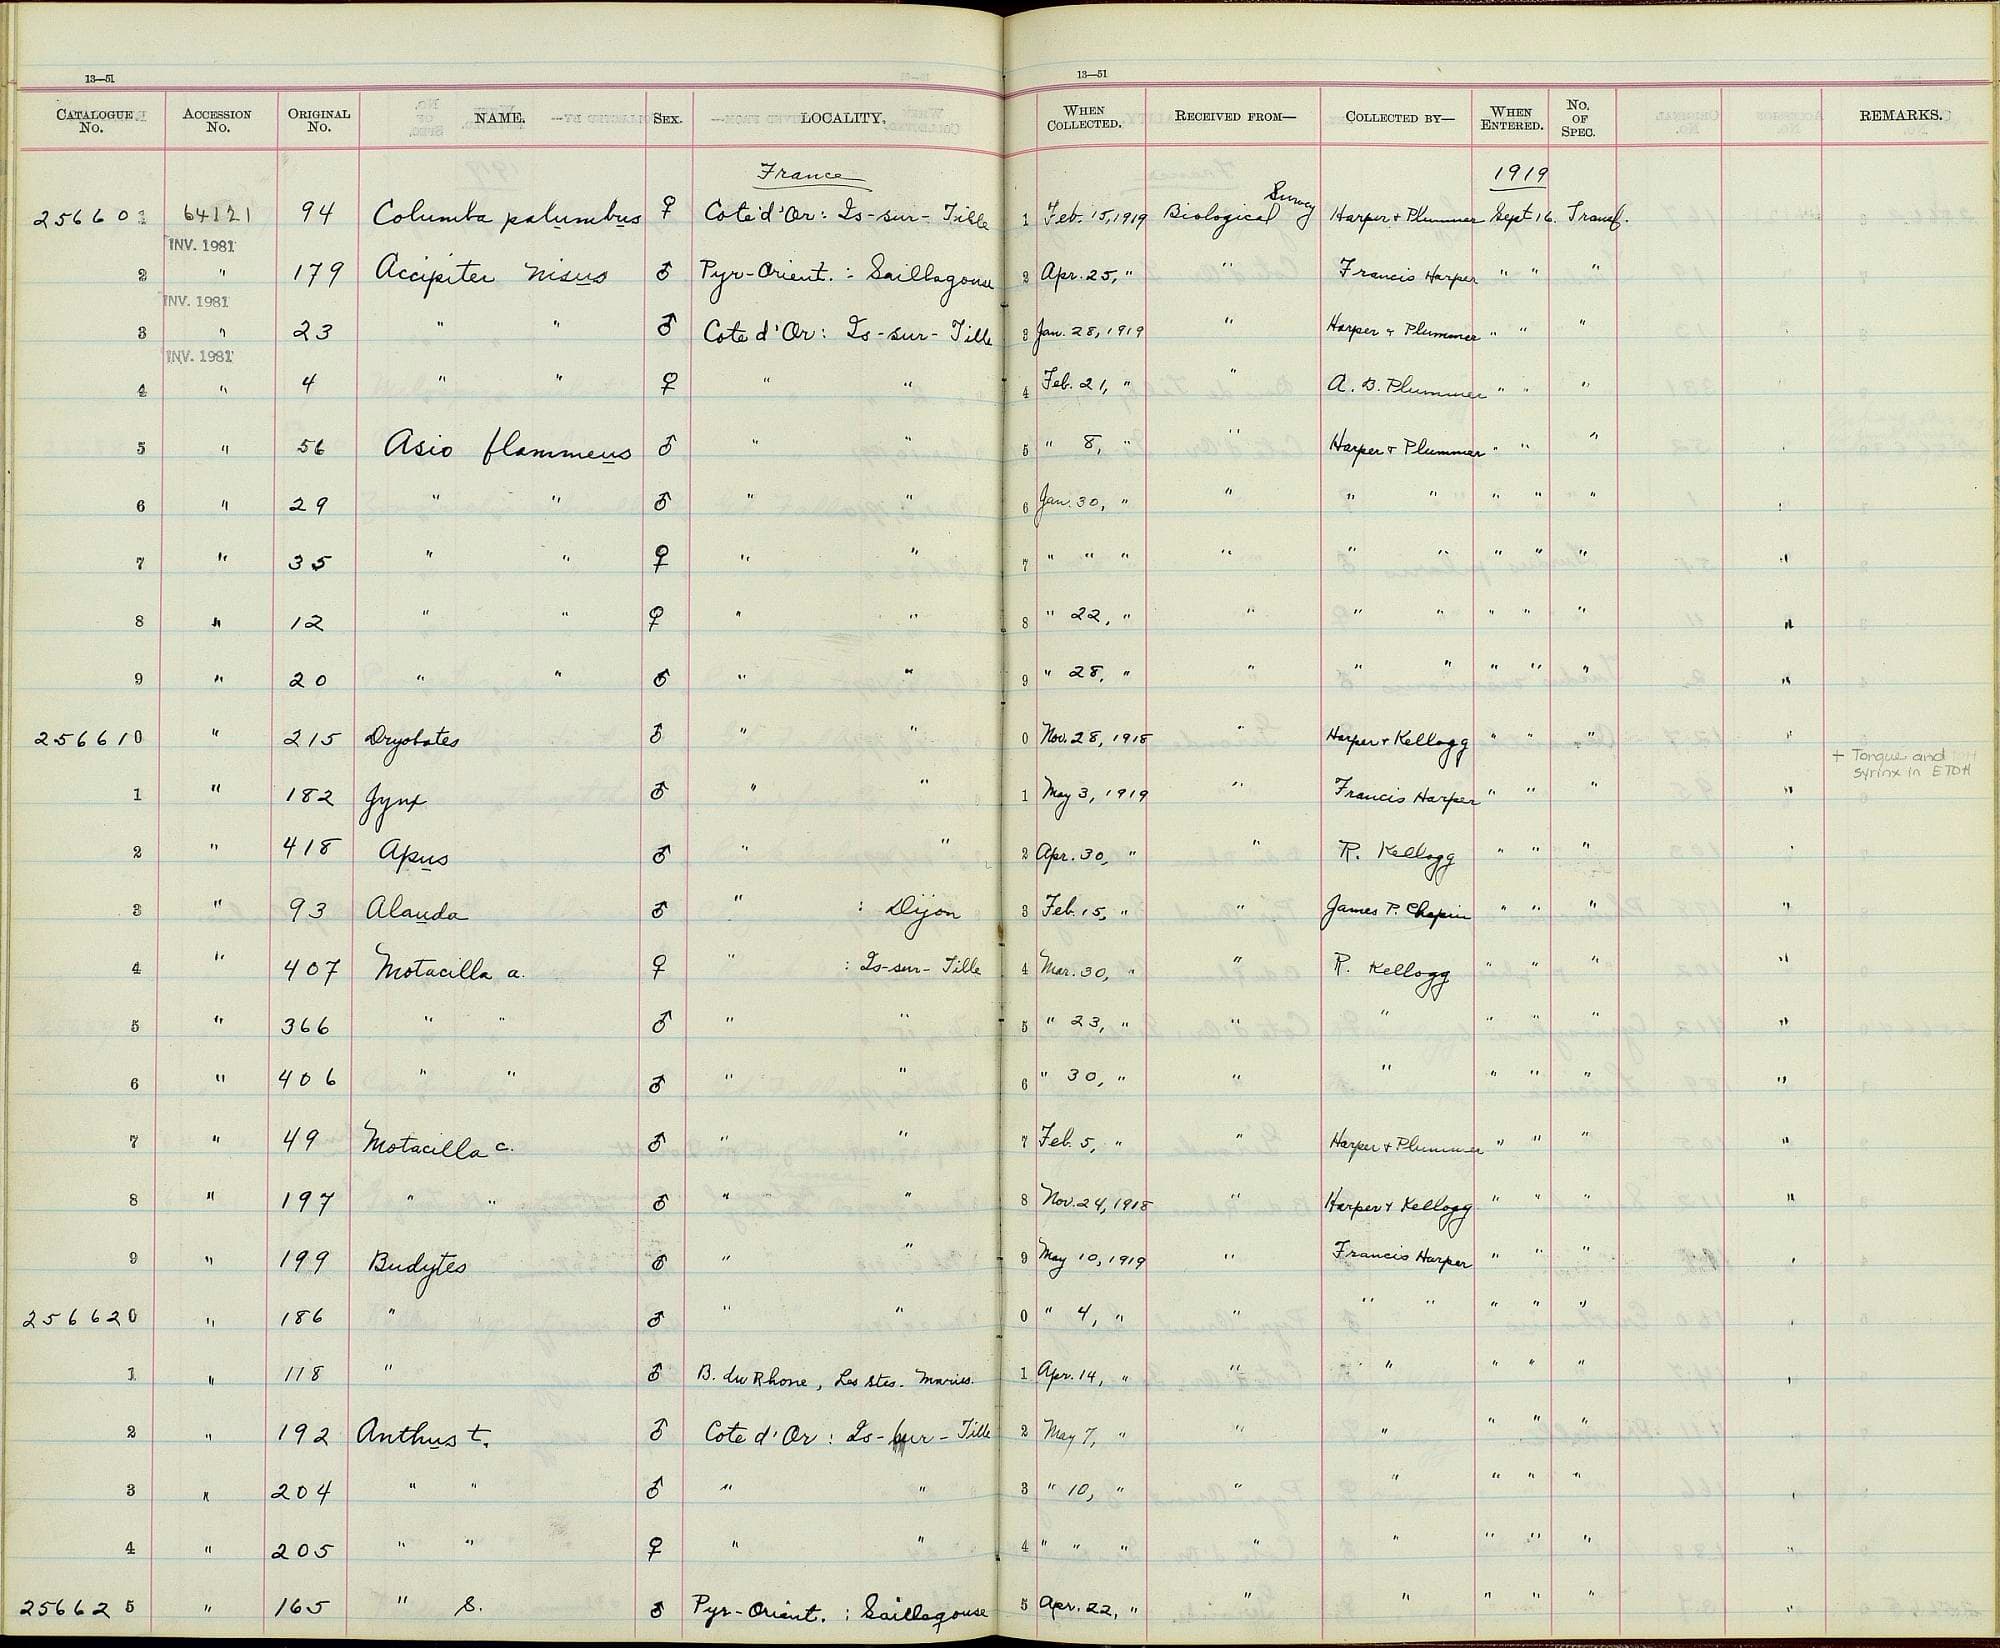 13—51 13—51
CATALOGUE No. ACCESSION No. ORIGINAL No. NAME. SEX. LOCALITY. WHEN COLLECTED. RECEIVED FROM— COLLECTED BY— WHEN ENTERED. No. OF SPEC. REMARKS.
France 1919
256601 64121 94 Columba palumbus ♀ Cote d'Or: Is-sur-Tille 1 Feb. 15, 1919 Biological Survey Harper & Plummer Sept 16. Transf.
INV. 1981
2 " 179 Accipiter nisus ♂ Pyr-Orient. : Saillagouse 2 Apr. 25, " " Francis Harper " " "
INV. 1981
3 " 23 " " ♂ Cote d'Or: Is-sur-Tille 3 Jan. 28, 1919 " Harper & Plummer " " "
INV. 1981
4 " 4 " " ♀ " " 4 Feb. 21, " " A. B. Plummer " " "
5 " 56 Asio flammeus ♂ " " 5 " 8, " " Harper & Plummer " " "
6 " 29 " " ♂ " " 6 Jan. 30, " " " " " " "
7 " 35 " " ♀ " " 7 " " " " " " " " " "
8 " 12 " " ♀ " " 8 " 22, " " " " " " " "
9 " 20 " " ♂ " " 9 " 28, " " " " " " " "
256610 " 215 Dryobates ♂ " " 0 Nov. 28, 1918 " Harper & Kellogg " " " "
+ Tongue and
syrinx in ETOH
1 " 182 Jynx ♂ " " 1 May 3, 1919 " Francis Harper " " " "
2 " 418 Apus ♂ " " 2 Apr. 30, " " R. Kellogg " " "
3 " 93 Alauda ♂ " : Dijon 3 Feb. 15, " " James P. Chapin " " " "
4 " 407 Motacilla a. ♀ " : Is-sur-Tille 4 Mar. 30, " " R. Kellogg " " " "
5 " 366 " " ♂ " " 5 " 23, " " " " " " "
6 " 406 " " ♂ " " 6 " 30, " " " " " " "
7 " 49 Motacilla c. ♂ " " 7 Feb. 5, " " Harper & Plummer " " " "
8 " 197 " " ♂ " " 8 Nov. 24, 1918 " Harper & Kellogg " " " "
9 " 199 Budytes ♂ " " 9 May 10, 1919 " Francis Harper " " "
256620 " 186 " ♂ " " 0 " 4, " " " " " " "
1 " 118 " ♂ B. du Rhone, Les Stes. Maries. 1 Apr. 14, " " " " " "
2 " 192 Anthus t. ♂ Cote d'Or : Is-sur-Tille 2 May 7, " " " " " "
3 " 204 " " ♂ " " 3 " 10, " " " " " "
4 " 205 " " ♀ " " 4 " " " " " " " "
256625 " 165 " s. ♂ Pyr-Orient. : Saillagouse 5 Apr. 22, " " " " " " "